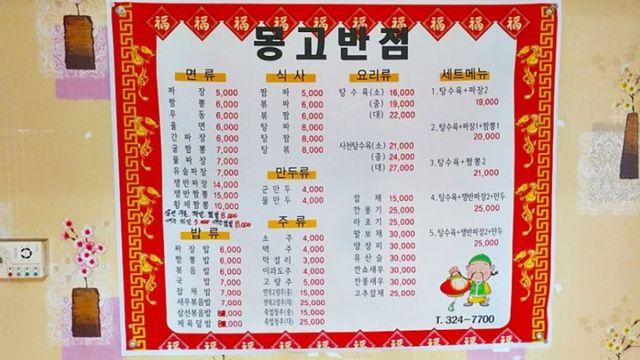 몽고반점
면 류
짜 장 5,000
짬 뽕 6,000
우 동 6,000
울 면 6,000
간 짜 장 6,000
굴 짬 뽕 7,000
물 짜 장 7,000
유 슬 짜 장 7,000
쟁반짜장 14,000
쟁반짬뽕 15,000
황제짬뽕 10,000
밥 류
짜 장 밥 6,000
짬 뽕 밥 6,000
볶 음 밥 6,000
국 밥 7,000
잡 채 밥 7,000
새우볶음밥 7,000
삼선볶음밥
제 육 덮 밥
식 사
짬 짜 5,000
볶 짜 5,000
볶 짬 6,000
탕 짜 8,000
탕 짬 8,000
탕 볶 8,000
만두류
군 만 두 4,000
물 만 두 4,000
주 류
소 주 4,000
맥 주 4,000
막 걸 리 3,000
이과도주 4,000
고 량 주 5,000
연태고량주(중) 15,000
연태고량주(대) 25,000
죽엽청주(중) 15,000
죽엽청주(대) 25,000
요리류
탕 수 육(소) 16,000
(중) 19,000
(대) 22,000
사천탕수육(소) 21,000
(중) 24,000
(대) 27,000
잡 채 15,000
깐 풍 기 25,000
라 조 기 25,000
팔 보 채 30,000
양 장 피 30,000
유 산 슬 30,000
깐쇼새우 30,000
깐풍새우 30,000
고추잡채 25,000
세트메뉴
1. 탕수육+짜장2
19,000
2. 탕수육+짜장1+짬뽕1
20,000
3. 탕수육+짬뽕2
21,000
4. 탕수육+쟁반짜장2+만두
25,000
5. 탕수육+쟁반짬뽕2+만두
25,000
T. 324-7700